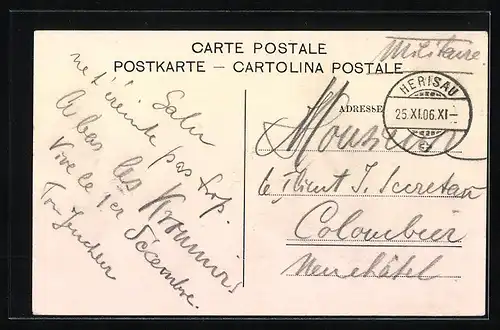 CARTE POSTALE
POSTKARTE – CARTOLINA POSTALE
Militaire.
HERISAU
25.XI.06.XI–
ADRESSE
Monsieur
le I. Secretan
Colombier
Neuchâtel
Salu
ne t'éreinte pas trop.
A bas les
Vive le 1er Décembre.
Ton